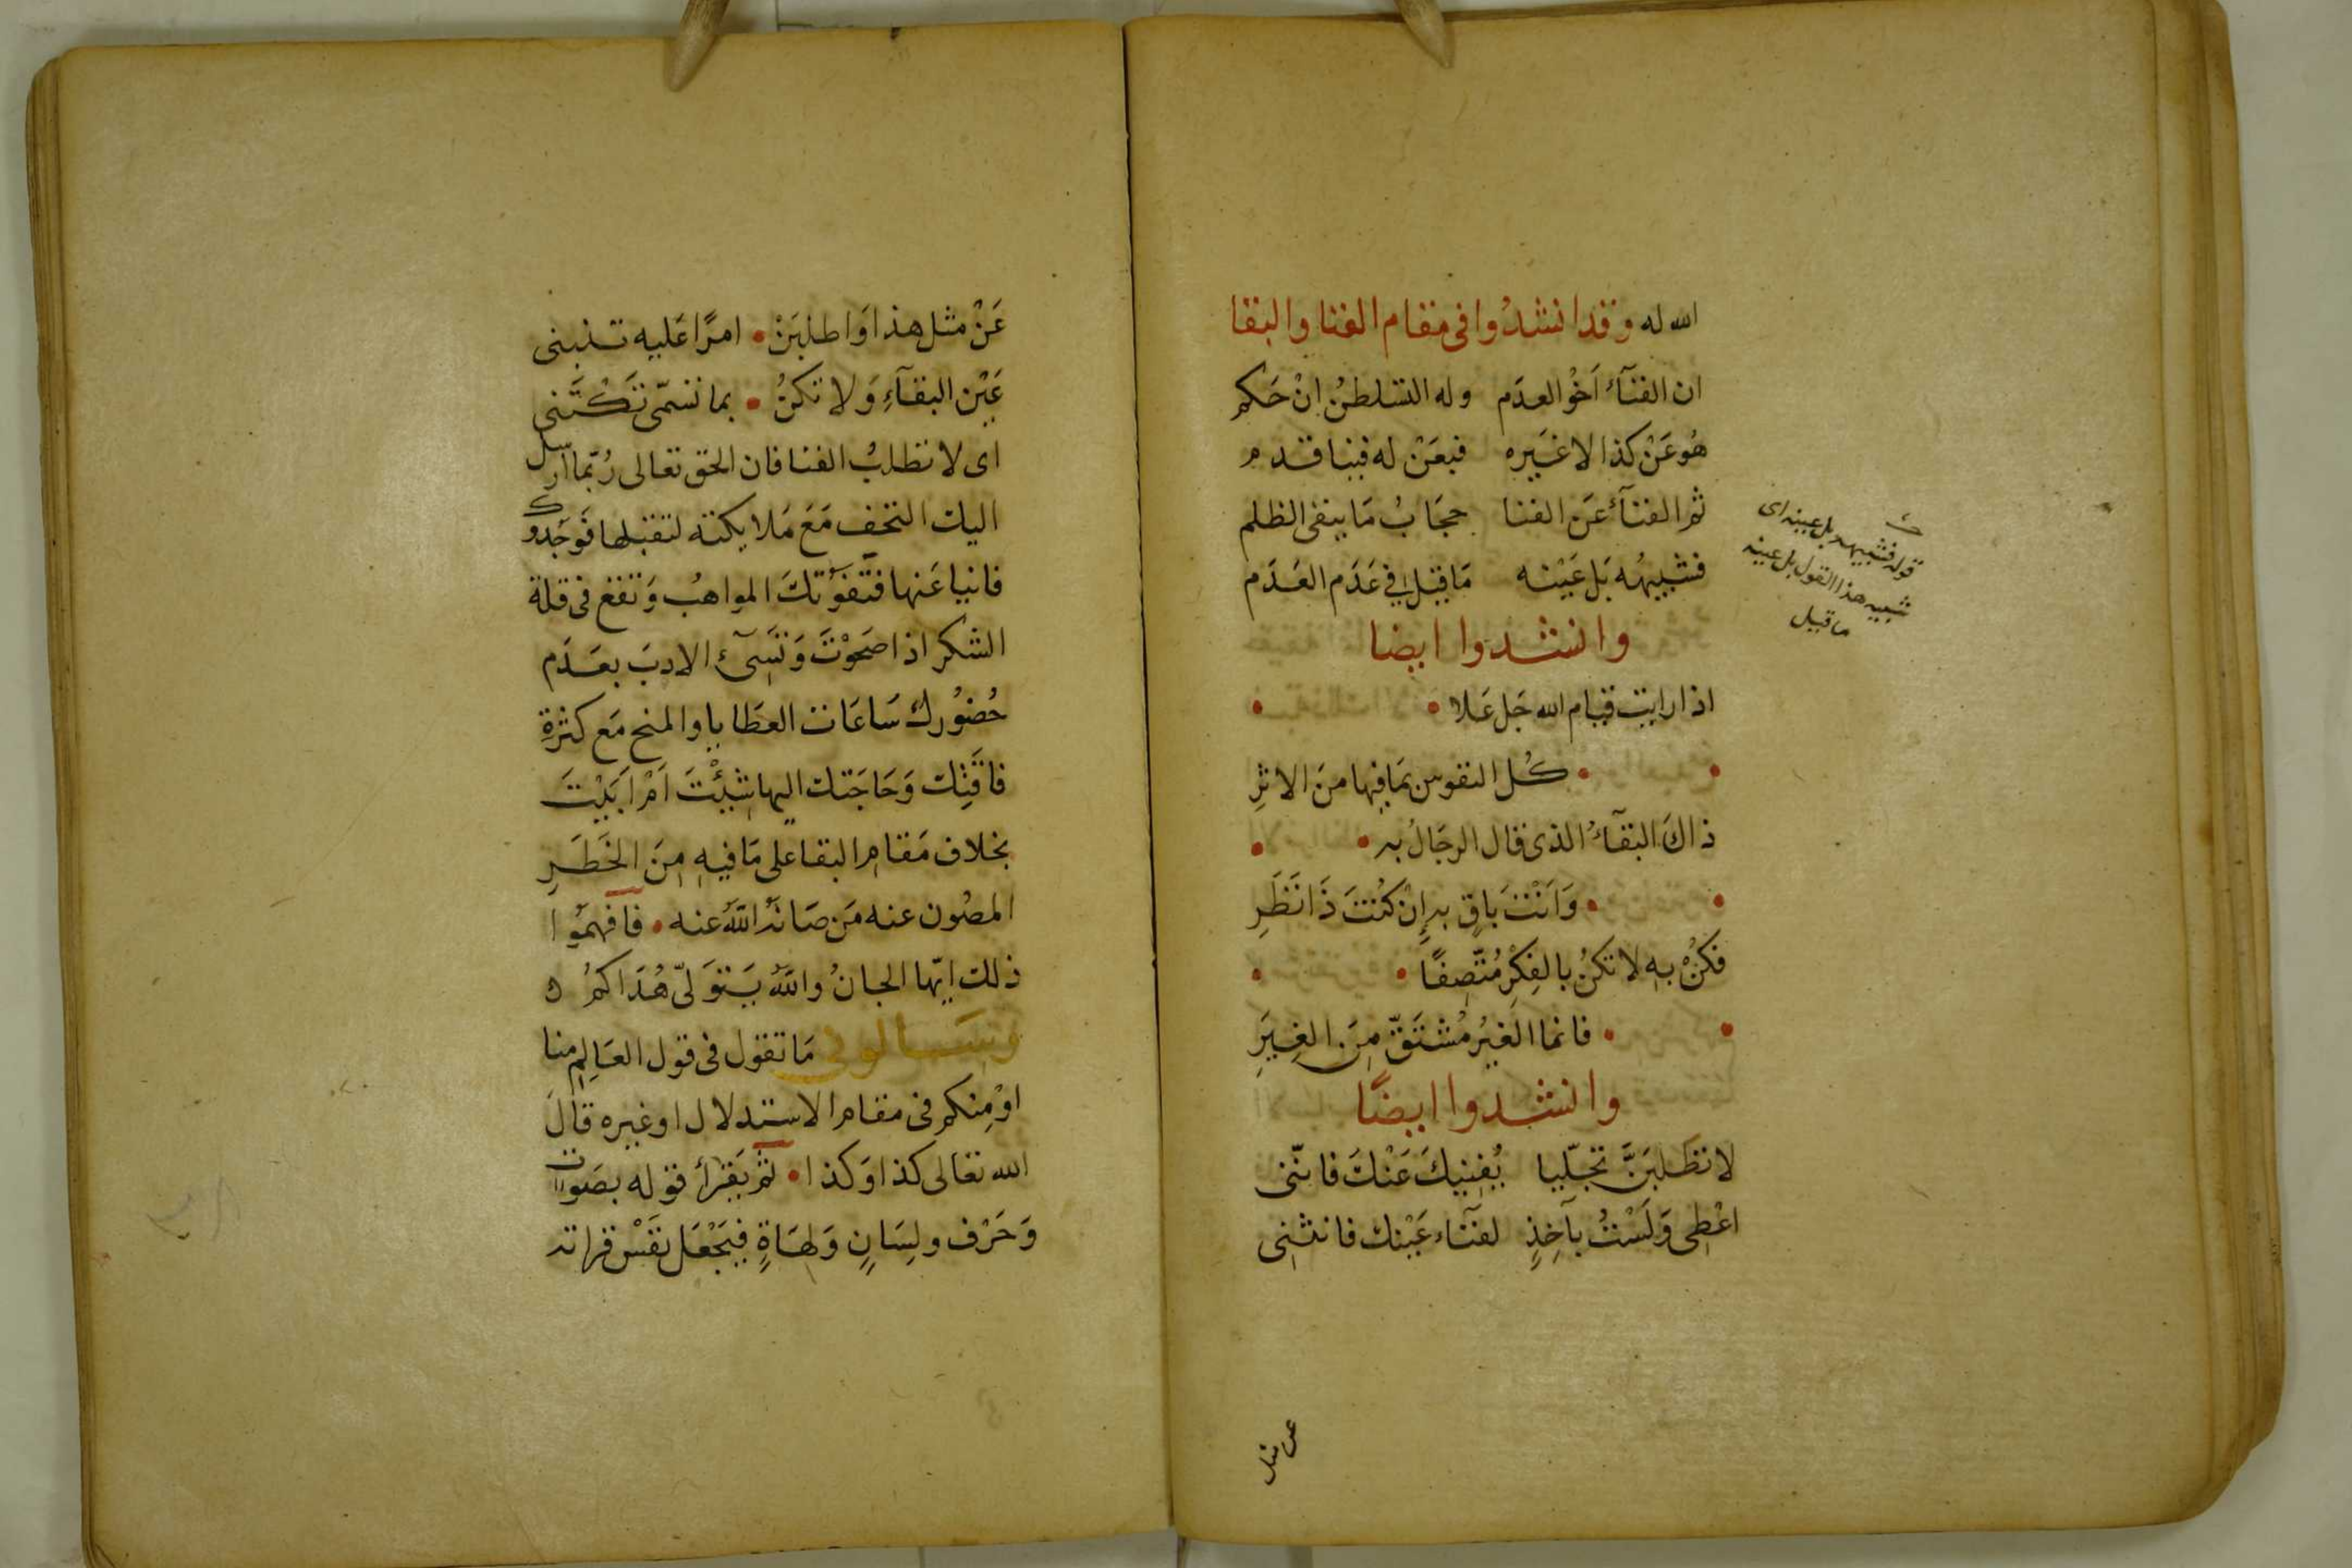 الله له وقد انشدُوا فى مقام الفنا والبقا
ان الفنآءُ اَخُو العدَم وله التسلطنُ اِنْ حَكم
هُوعَنْ كذا لا غيَره فبعَنْ له فينا قدم
ثم الفنآءُ عَن الفنا حجَابُ مَا يبقى الظلم
فشبيهُه بَل عَيْنه مَا قيل في عَدَم العَدَم
وانشدوا ايضا
اذا رايت قيام الله جَل عَلا
كُل النفوس بمَا فيها منَ الاثرِ
ذاكَ البقآءُ الذى قال الرجَالُ به
وَاَنْتَ بَاقٍ به اِنْ كُنْتَ ذَا نَظَرِ
فكُنْ بهِ لا تكنُ بالفِكْرِ مُتّصِفًا
فانما الغيرُ مُشْتَقّ مِنَ الغِيَرِ
وانشدوا ايضًا
لا تطلبَنَّ تجلّيا يُفنِيكَ عَنْكَ فانّنى
اعْطِى وَلَسْتُ بآخِذٍ لفنَآء عَيْنك فانثنِى
قوله فشبيهه بل عينه اى
شبيه هذا القول بل عينه
ما قيل
عن مثل
عَنْ مثل هذا وَاطلبَنْ • امرًا عَليه تنبنى
عَيْن البقآءِ وَلا تكنُ • بما تسمّى تَكْتَنى
اى لا تطلبُ الفنا فان الحق تعالى رُبّما ارسل
اليك التحف مَعَ مَلايكته لتقبلها فوَجَدوك
فانيا عَنها فتفوُتكَ المواهبُ وَتقع فى قلة
الشكر اذا صَحَوْتَ وَتسَئُ الادبَ بعَدَم
حُضوُرك سَاعَات العطَايا والمنح مَع كثرةِ
فاقتِك وَحَاجَتك اليها شِئْتَ اَمْ اَبَيْتَ
بخلاف مَقامِ البقا على مَا فيهِ مِنَ الخَطَرِ
المصُون عنه مَن صَانهُ اللهُ عنه • فافهمُوا
ذلك ايّها الجانُ واللهُ يَتوَلىّ هُدَاكمُ ه
وسَالونى مَا تقول فى قول العَالِم منا
اوْ مِنكم فى مقام الاستدلال او غيره قالَ
الله تعالى كذا وَكذا • ثمّ يَقرأ قوله بصَوت
وَحَرْف ولِسَانٍ وَلهَاةٍ فيَجْعَل نفَسْ قراته